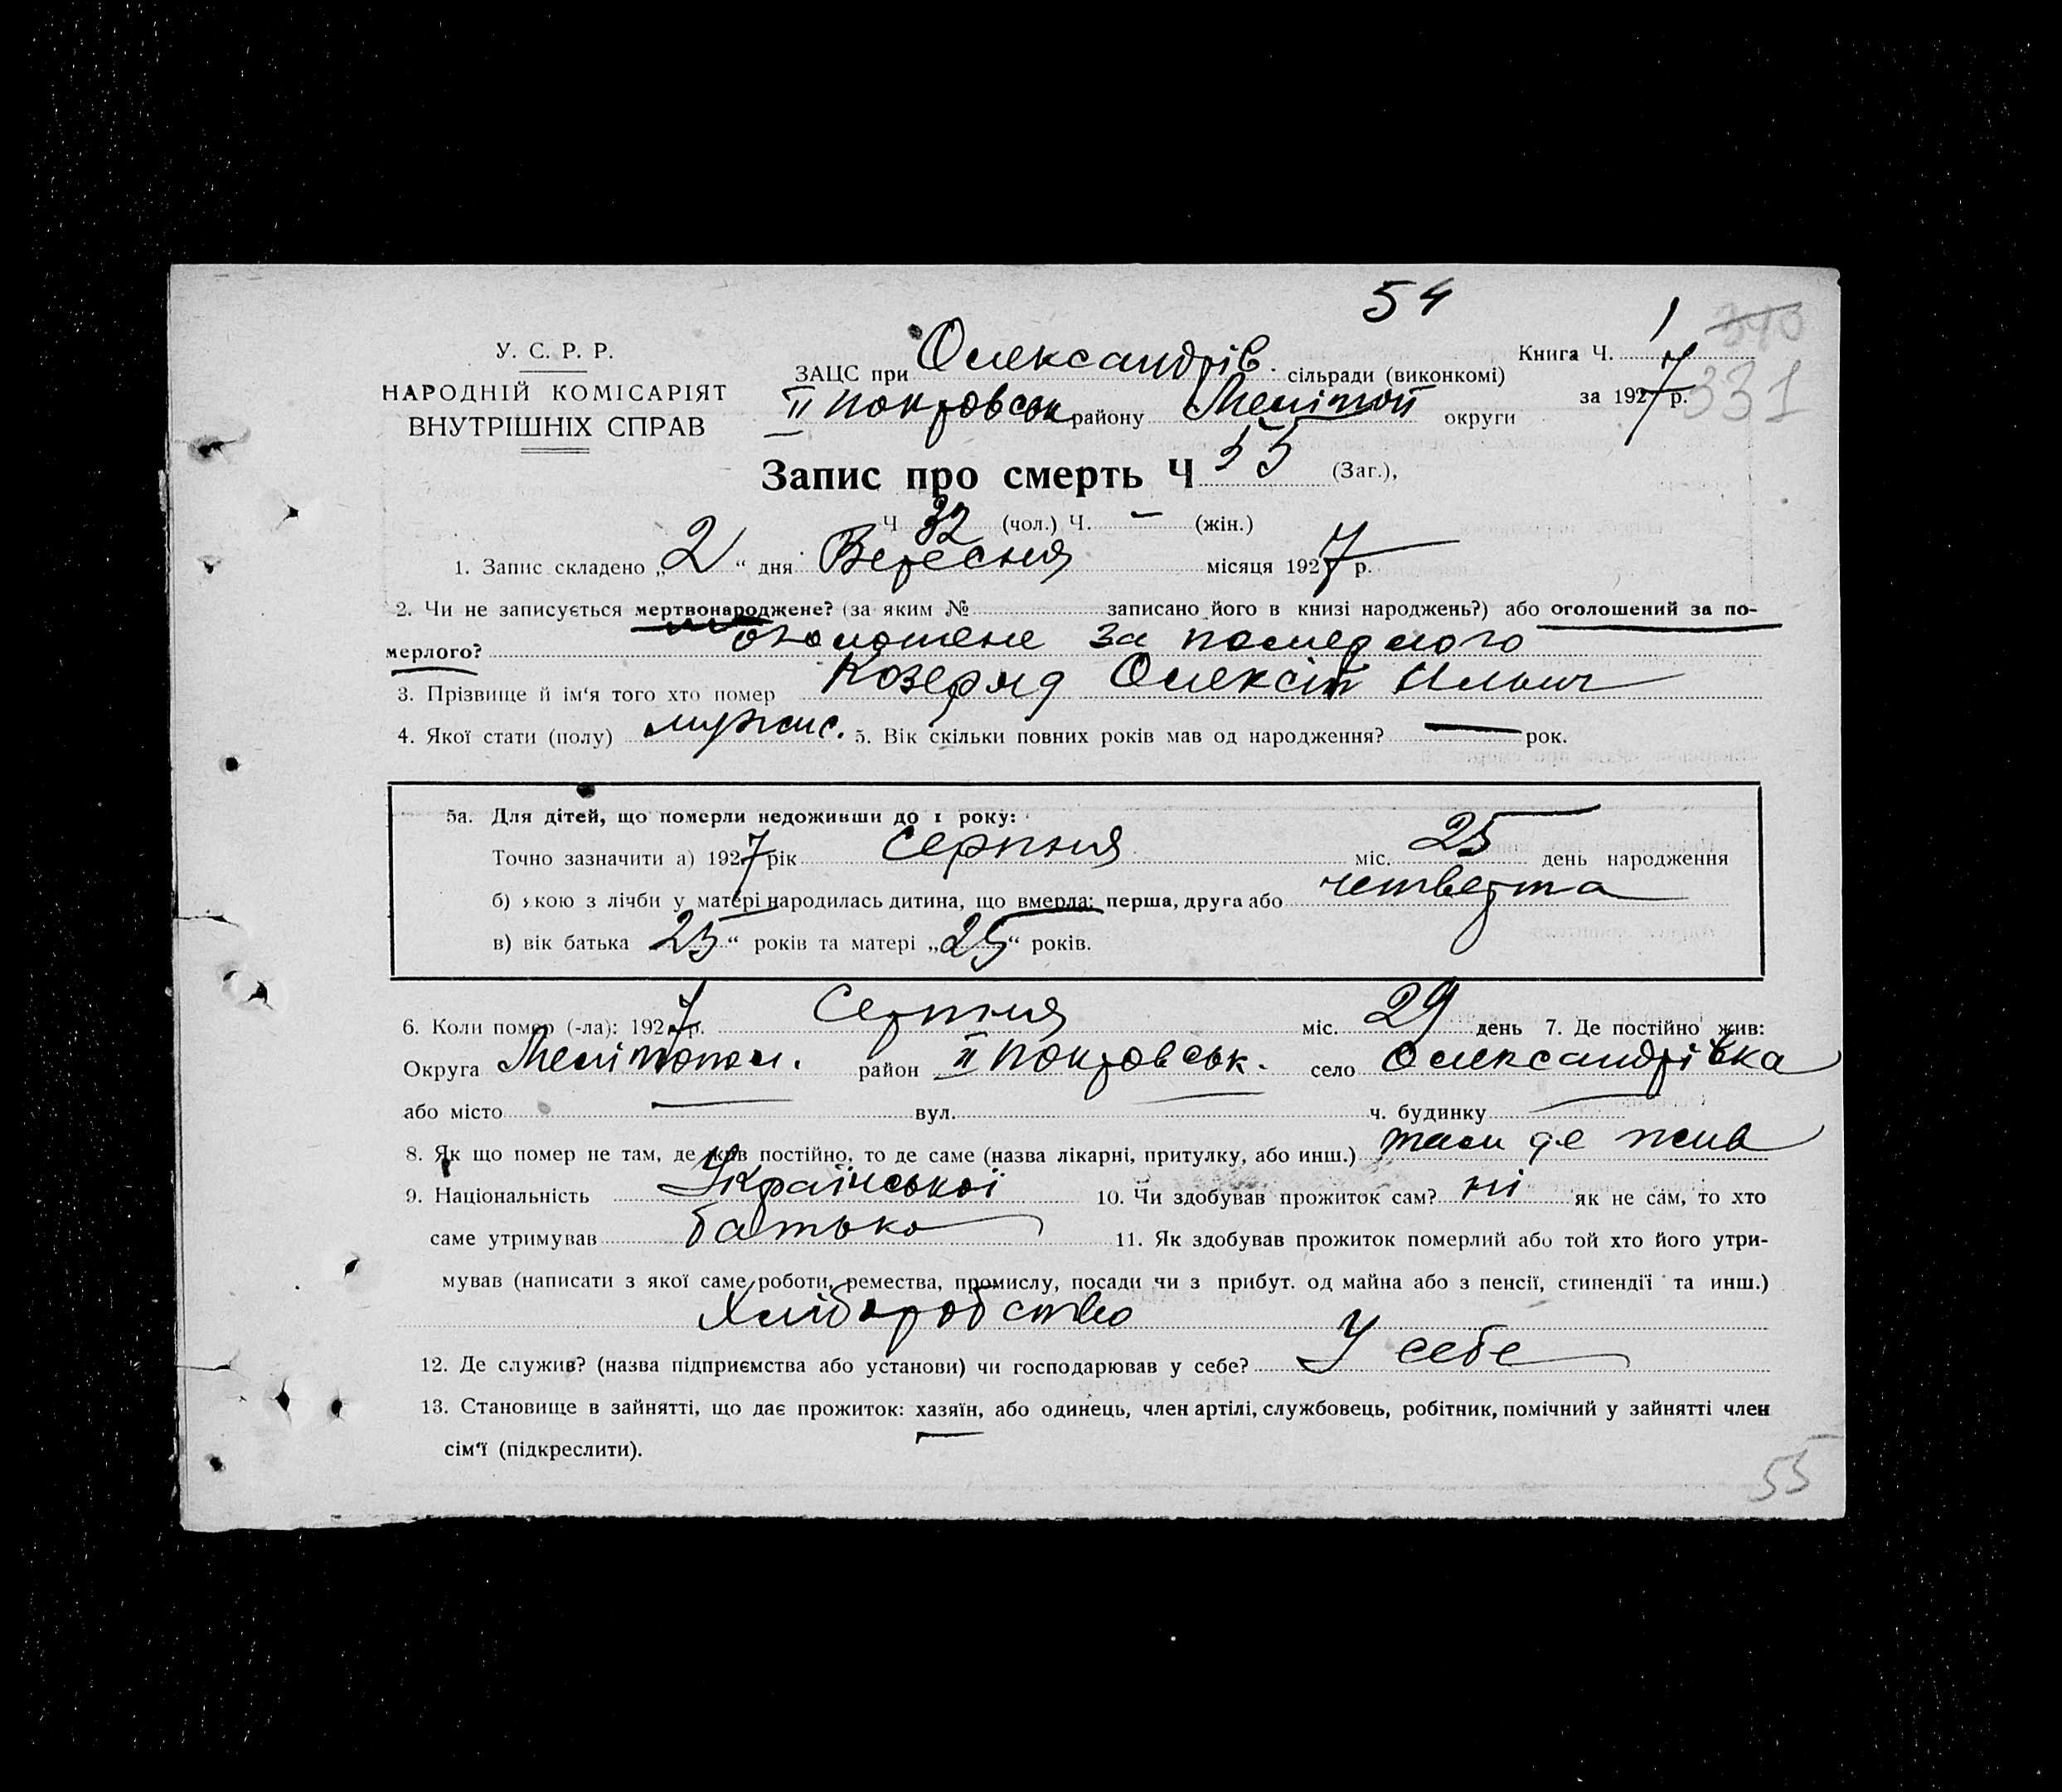 54
У. С. Р. Р.
НАРОДНІЙ КОМІСАРІЯТ
ВНУТРІШНІХ СПРАВ
ЗАЦС при Олександрів. сільради (виконкомі)
II Покровськ району Мелітоп округи
Книга Ч. 1
за 1927 р.
331
Запис про смерть Ч 55 (Заг.),
Ч 32 (чол.) Ч. – (жін.)
1. Запис складено „2“ дня Вересня місяця 1927 р.
2. Чи не записується мертвонароджене? (за яким № записано його в книзі народжень?) або оголошений за по-
мерлого? за
3. Прізвище й ім‘я того хто помер Козеряд Олексій Ильич
4. Якої стати (полу) мужис. 5. Вік скільки повних років мав од народження? — рок.
5а. Для дітей, що померли недоживши до 1 року:
Точно зазначити а) 1927 рік Серпня міс. 25 день народження
б) якою з лічби у матері народилась дитина, що вмерла: перша, друга або четверта
в) вік батька 25 “ років та матері „25“ років.
6. Коли помер (-ла): 1927 р. Серпня міс. 29 день 7. Де постійно жив:
Округа Мелітопол. район II Покровськ. село Олександрівка
або місто — вул. — ч. будинку —
8. Як що помер не там, де жив постійно, то де саме (назва лікарні, притулку, або инш.) там де жив
9. Національність Української 10. Чи здобував прожиток сам? ні як не сам, то хто
саме утримував батько 11. Як здобував прожиток померлий або той хто його утри-
мував (написати з якої саме роботи, ремества, промислу, посади чи з прибут. од майна або з пенсії, стипендії та инш.)
Хліборобство
12. Де служив? (назва підприємства або установи) чи господарював у себе? У себе
13. Становище в зайнятті, що дає прожиток: хазяїн, або одинець, член артілі, службовець, робітник, помічний у зайнятті член
сім‘ї (підкреслити).
55